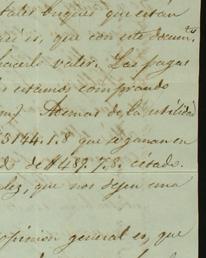 tales buques que están
que con este docum.to
hacerlo valer. Las pagas
estamos comprando
Ademas de la utilidad
5144.1.8 que se ganan en
de 1487.7.8. citado.
que nos dejen una
opinion general es, que